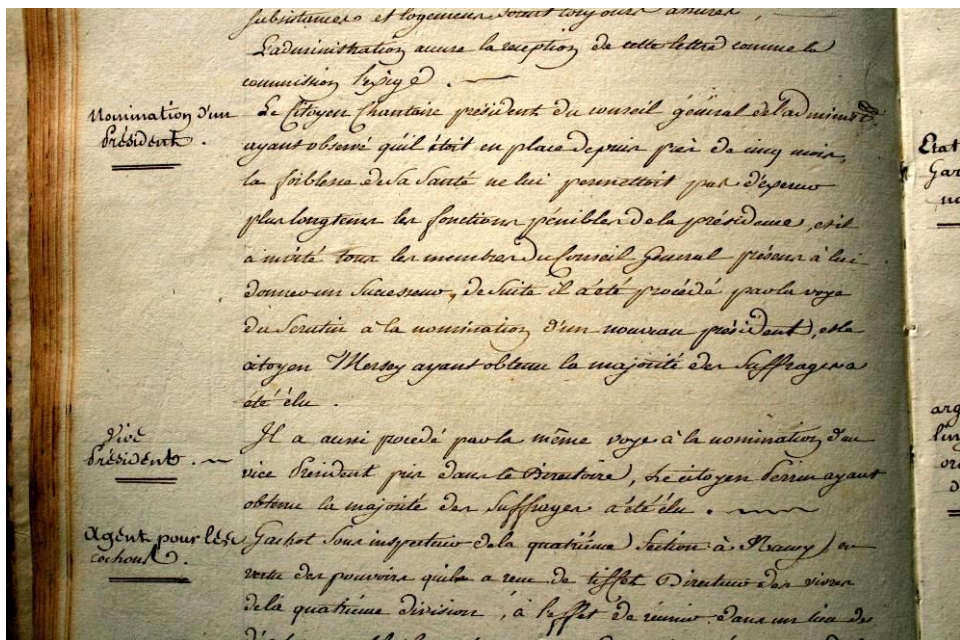 subsistances et logemens soient toujours assurés,
L'administration accuse la reception de cette lettre comme la
commission l'exige.
Nomination d'un
Président.
Le Citoyen président du conseil général de l'adminis
ayant observé qu'il étoit en place depuis près de cinq mois,
la foiblesse de sa santé ne lui permettoit pas d'exercer
plus longtems les fonctions pénibles de la présidence, et il
a invité tous les membres du Conseil Général présens à lui
donner un successeur, de suite il a été procédé par la voye
du Scrutin à la nomination d'un nouveau président, et le
citoyen Messey ayant obtenu la majorité des Suffrages a
été élu.
Vice
Président.
Il a aussi procédé par la même voye à la nomination d'un
vice Président pris dans le Directoire, Le citoyen Perrin ayant
obtenu la majorité des suffrages a été élu.
Agent pour les
cochons.
Gachot Sous inspecteur de la quatrième Section à Nancy, en
vertu des pouvoirs qu'il a recu de tisset Directeur des vivres
de la quatrième division, à l'effet de réunir dans un lieu de
Etat
Gar
no
arg
l'in
or
d